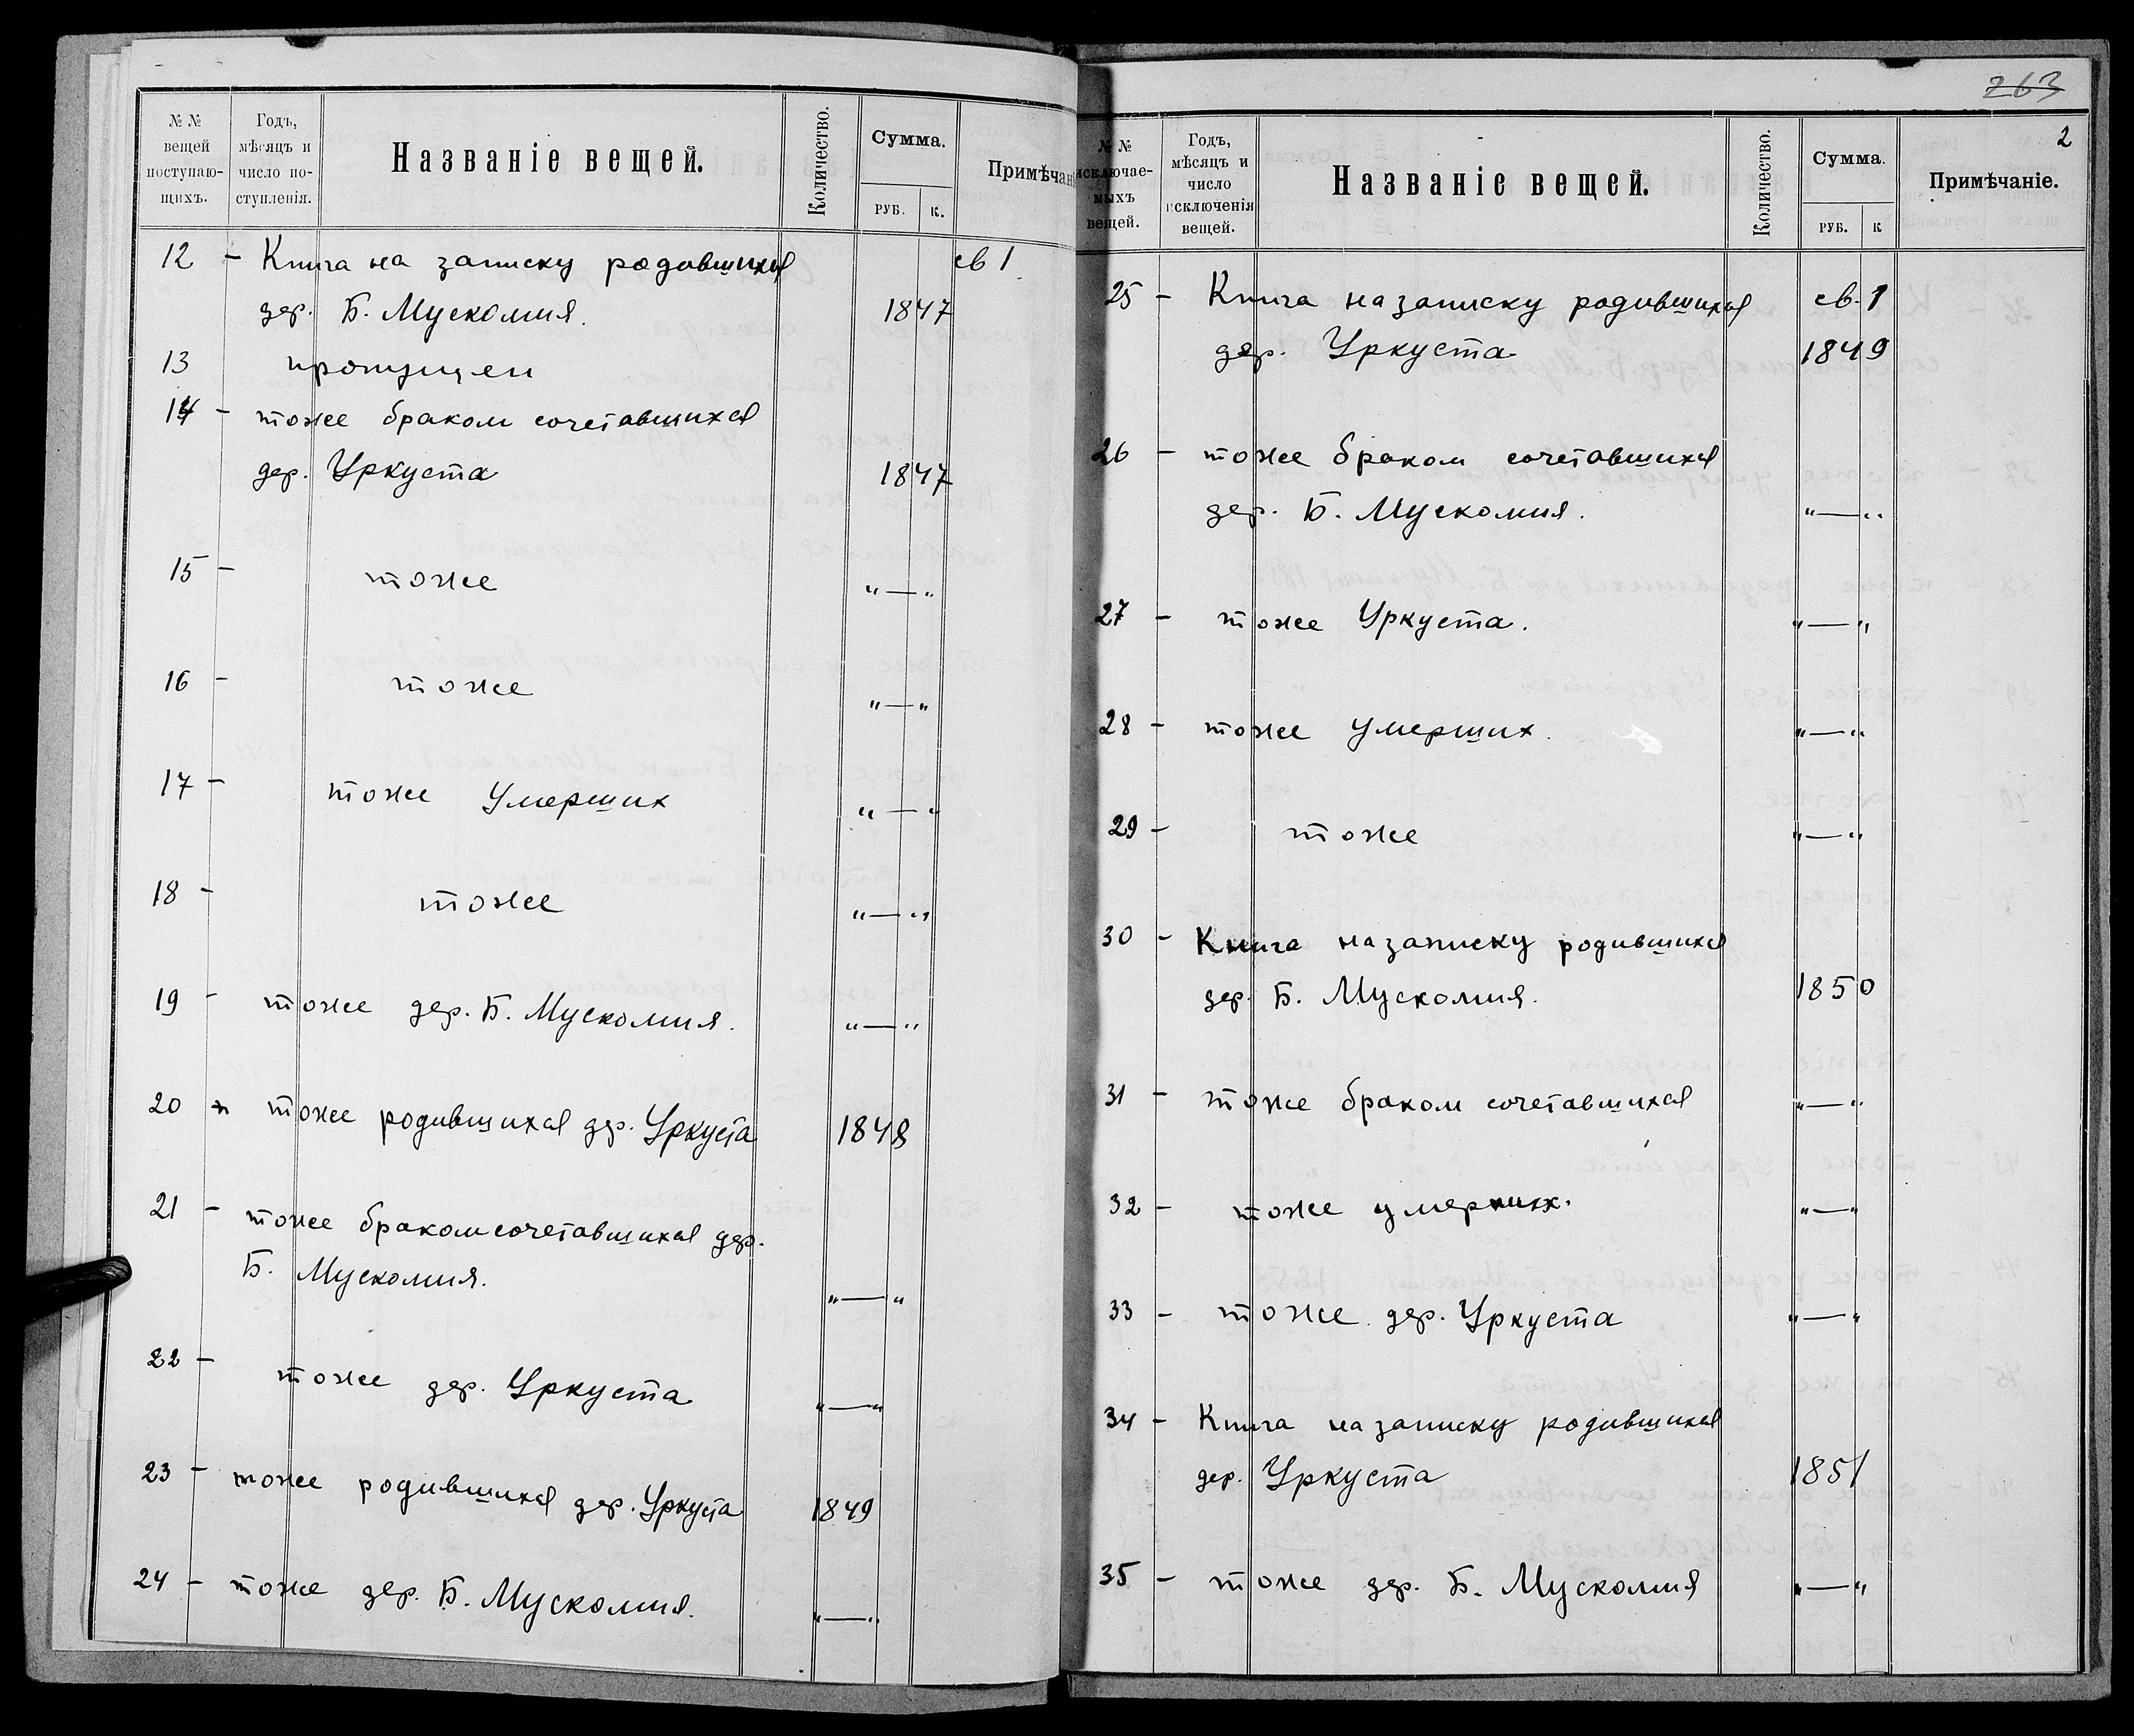 № №
вещей
поступаю-
щихъ.
Годъ,
мѣсяцъ и
число по-
ступленія.
Названіе вещей.
Количество.
Сумма.
РУБ. К.
Примѣчан
12 - Книга на записку родившихся св 1
дер. Б. Мускомия. 1847
13 пропущен
14 - тоже браком сочетавшихся
дер. Уркуста 1847
15 - тоже " — "
16 - тоже " — "
17 - тоже умерших " — "
18 - тоже " — "
19 - тоже дер. Б. Мускомия. " — "
20 - тоже родившихся др. Уркуста 1848
21 - тоже браком сочетавшихся дер.
Б. Мускомия. " — "
22 - тоже дер. Уркуста " — "
23 - тоже родившихся дер. Уркуста 1849
24 - тоже дер. Б. Мускомия. " — "
263
2
№ №
исключае-
мыхъ
вещей.
Годъ,
мѣсяцъ и
число
исключенія
вещей.
Названіе вещей.
Количество.
Сумма.
РУБ. К
Примѣчаніе.
25 - Книга на записку родившихся св. 1
дер. Уркуста 1849
26 - тоже браком сочетавшихся
дер. Б. Мускомия. " — "
27 - тоже Уркуста. " — "
28 - тоже умерших. " — "
29 - тоже " — "
30 - Книга на записку родившихся
дер. Б. Мускомия. 1850
31 - тоже браком сочетавшихся " — "
32 - тоже умерших. " — "
33 - тоже дер. Уркуста " — "
34 - Книга на записку родившихся
дер. Уркуста 1851
35 - тоже дер. Б. Мускомия " — "